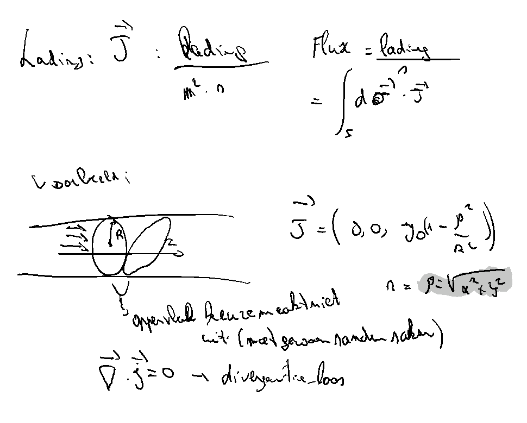 Lading: J⃗ : lading / m² · s
Flux = lading / s
= ∫_S dσ⃗ · J⃗
Voorbeeld:
R
z
J⃗ = (0, 0, J₀(1 - ρ²/R²))
ρ = √(x² + y²)
oppervlak keuze maakt niet
uit (moet gewoon randen raken)
∇⃗ · J⃗ = 0 → divergentie-loos